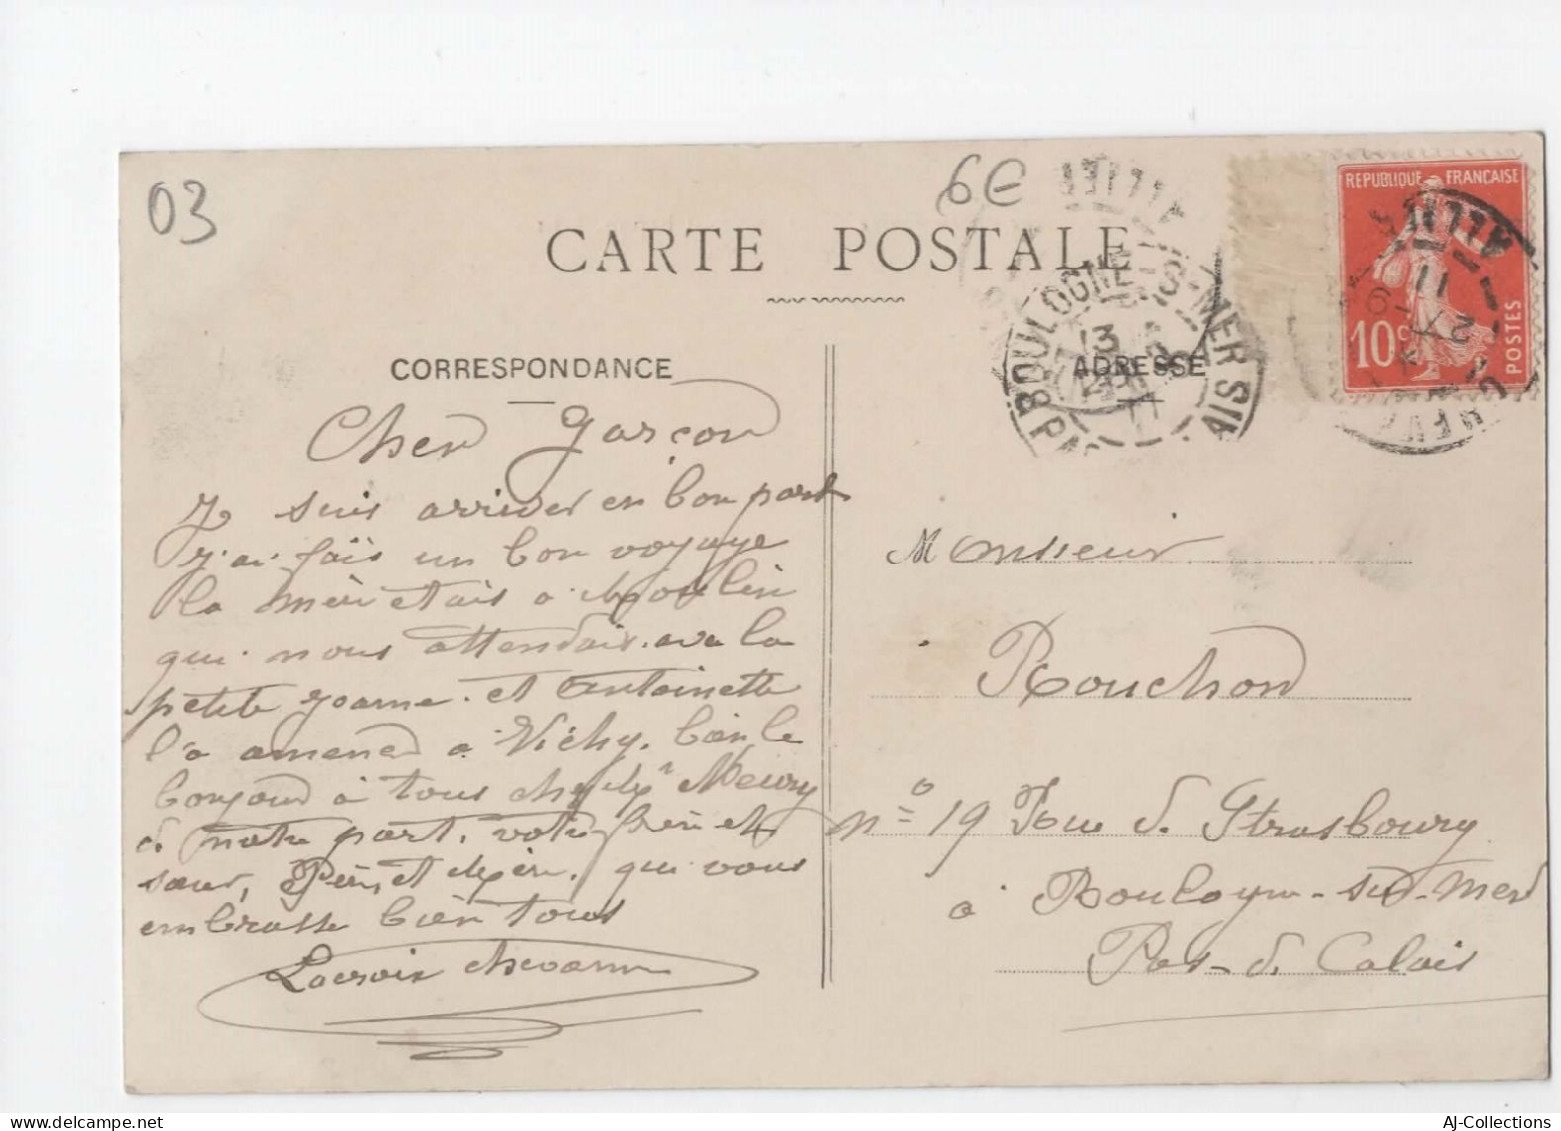 03
6€
CARTE POSTALE
REPUBLIQUE FRANÇAISE
10c
POSTES
ALLIER
11
27-9
BOULOGNE-S-MER
PAS
AIS
13
11
CORRESPONDANCE
ADRESSE
Cher garçon
Je suis arriver en bon port
J'ai fais un bon voyage
la mère etais a Moulin
qui nous attendais. ave la
petite Joanne. et Antoinette
l'a amener a Vichy. bien le
bonjour à tous chez Mr Meury
de notre part, votre frère et
sœur, Père, et Mère, qui vous
embrasse bien tous
Lacroix
Monsieur
Rouchon
no 19 Rue de Strasbourg
à Boulogne-sur-mer
Pas-de Calais
AJ-Collections